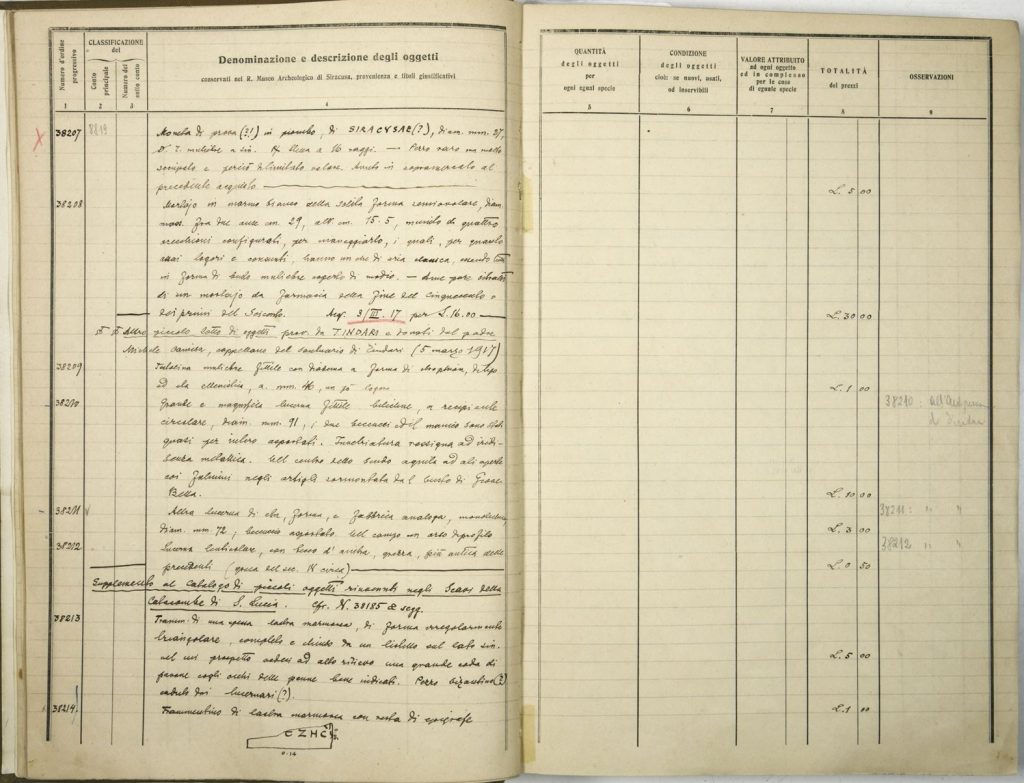 Numero d'ordine progressivo
CLASSIFICAZIONE
del
Conto principale
Numero del sotto conto
Denominazione e descrizione degli oggetti
conservati nel R. Museo Archeologico di Siracusa, provenienza e titoli giustificativi
1 2 3 4
38207 8219 Moneta di prova (?!) in piombo, di SIRACVSAE (?), diam. mm. 27,
muliebre a sin. R. Stella a 16 raggi. — Pezzo raro ma molto
sciupato e perciò di limitato valore. Avuto in sopramercato al
precedente acquisto
38208 Mortajo in marmo bianco della solita forma semiovolare, diam.
mass. fra due anse cm. 29, alt. cm. 15.5, munito di quattro
orecchioni configurati, per maneggiarlo, i quali, per quanto
assai logori e consunti, hanno un che di aria classica, essendo
in forma di busto muliebre coperto di modio. — A me pare trattarsi
di un mortajo da farmacia della fine del Cinquecento o
dei primi del Seicento. Acq. 3/III. 17 per L. 16.00
Altro piccolo lotto di oggetti prov. da TINDARI e donati dal padre
Michele, cappellano del Santuario di Tindari (5 marzo 1917)
38209 Testolina muliebre fittile con diadema a forma di, di tipo
ed età ellenistica, a. mm. 46, un pò logora
38210 Grande e magnifica lucerna fittile bilicne, a recipiente
circolare, diam. mm. 91, i due beccucci ed il manico sono stati
quasi per intero asportati. Inverniatura rossigna ad iridi-
scenza metallica. Nel centro dello scudo aquila ad ali aperte
coi fulmini negli artigli sormontata dal busto di Giove.
Bella.
38211 Altra lucerna di età, forma, e fabbrica analoga, monolicne,
diam. mm. 72, beccuccio asportato. Nel campo un orso di profilo
38212 Lucerna lenticolare, con becco d'ancora, grezza, più antica delle
precedenti (greca del sec. IV circa)
Supplemento al Catalogo di piccoli oggetti rinvenuti negli Scavi della
Catacombe di S. Lucia. Cfr. N. 38185 e segg.
38213 Framm. di una spessa lastra marmorea, di forma irregolarmente
triangolare, completo e chiuso da un listello sul lato sin.
nel cui prospetto vedesi ad alto rilievo una grande coda di
pavone cogli occhi delle penne bene indicati. Pezzo bizantino (?)
caduto dai lucernari (?).
38214. Frammentino di lastra marmorea con resto di epigrafe
CZHC
0.14
QUANTITÀ
degli oggetti
per
ogni egual specie
CONDIZIONE
degli oggetti
cioè: se nuovi, usati,
od inservibili
VALORE ATTRIBUITO
ad ogni oggetto
ed in complesso
per le cose
di eguale specie
TOTALITÀ
dei prezzi
OSSERVAZIONI
5 6 7 8 9
L. 5 00
L. 30 00
L. 1 00
38210:
L. 10 00
38211: " "
L. 3 00
38212 " "
L. 0 50
L. 5 00
L. 1 00